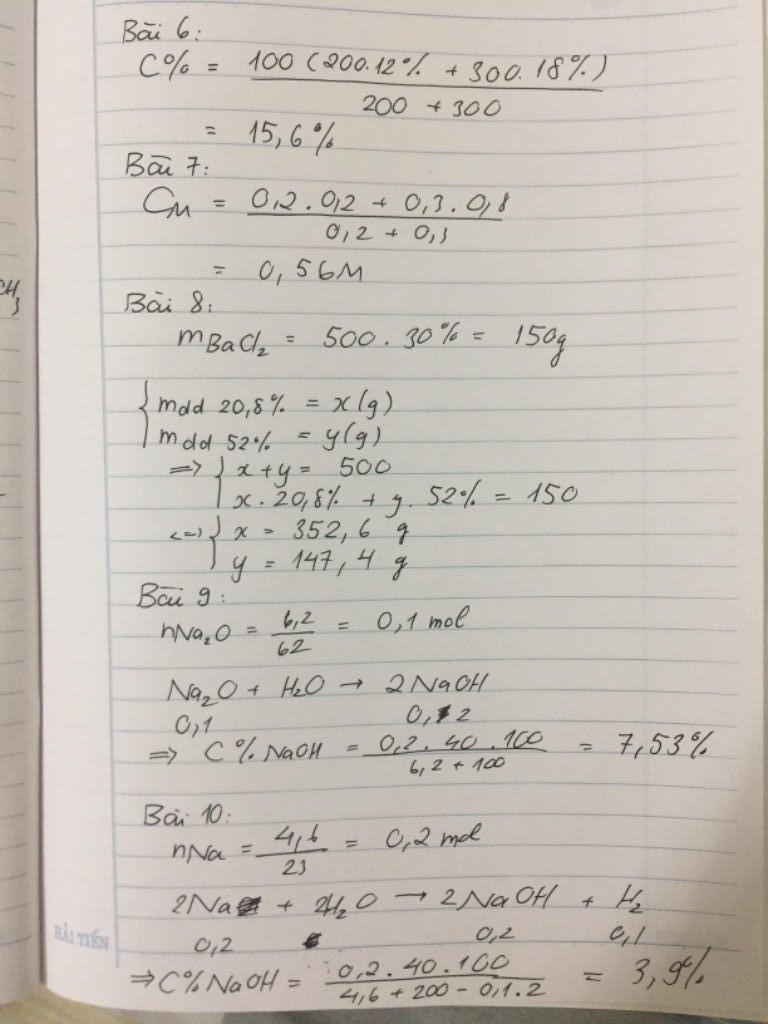 Bài 6:
C% = 100 (200.12% + 300.18%) / 200 + 300
= 15,6%
Bài 7:
CM = 0,2 . 0,2 + 0,3 . 0,8 / 0,2 + 0,3
= 0,56M
CH3
Bài 8:
mBaCl2 = 500 . 30% = 150g
{ mdd 20,8% = x(g)
mdd 52% = y(g)
=> { x + y = 500
x . 20,8% + y . 52% = 150
<=> { x = 352,6 g
y = 147,4 g
Bài 9:
nNa2O = 6,2 / 62 = 0,1 mol
Na2O + H2O → 2NaOH
0,1 0,2
=> C% NaOH = 0,2 . 40 . 100 / 6,2 + 100 = 7,53%
Bài 10:
nNa = 4,6 / 23 = 0,2 mol
2Na + 2H2O → 2NaOH + H2
0,2 0,2 0,1
=> C% NaOH = 0,2 . 40 . 100 / 4,6 + 200 - 0,1 . 2 = 3,9%
HẢI TIẾN